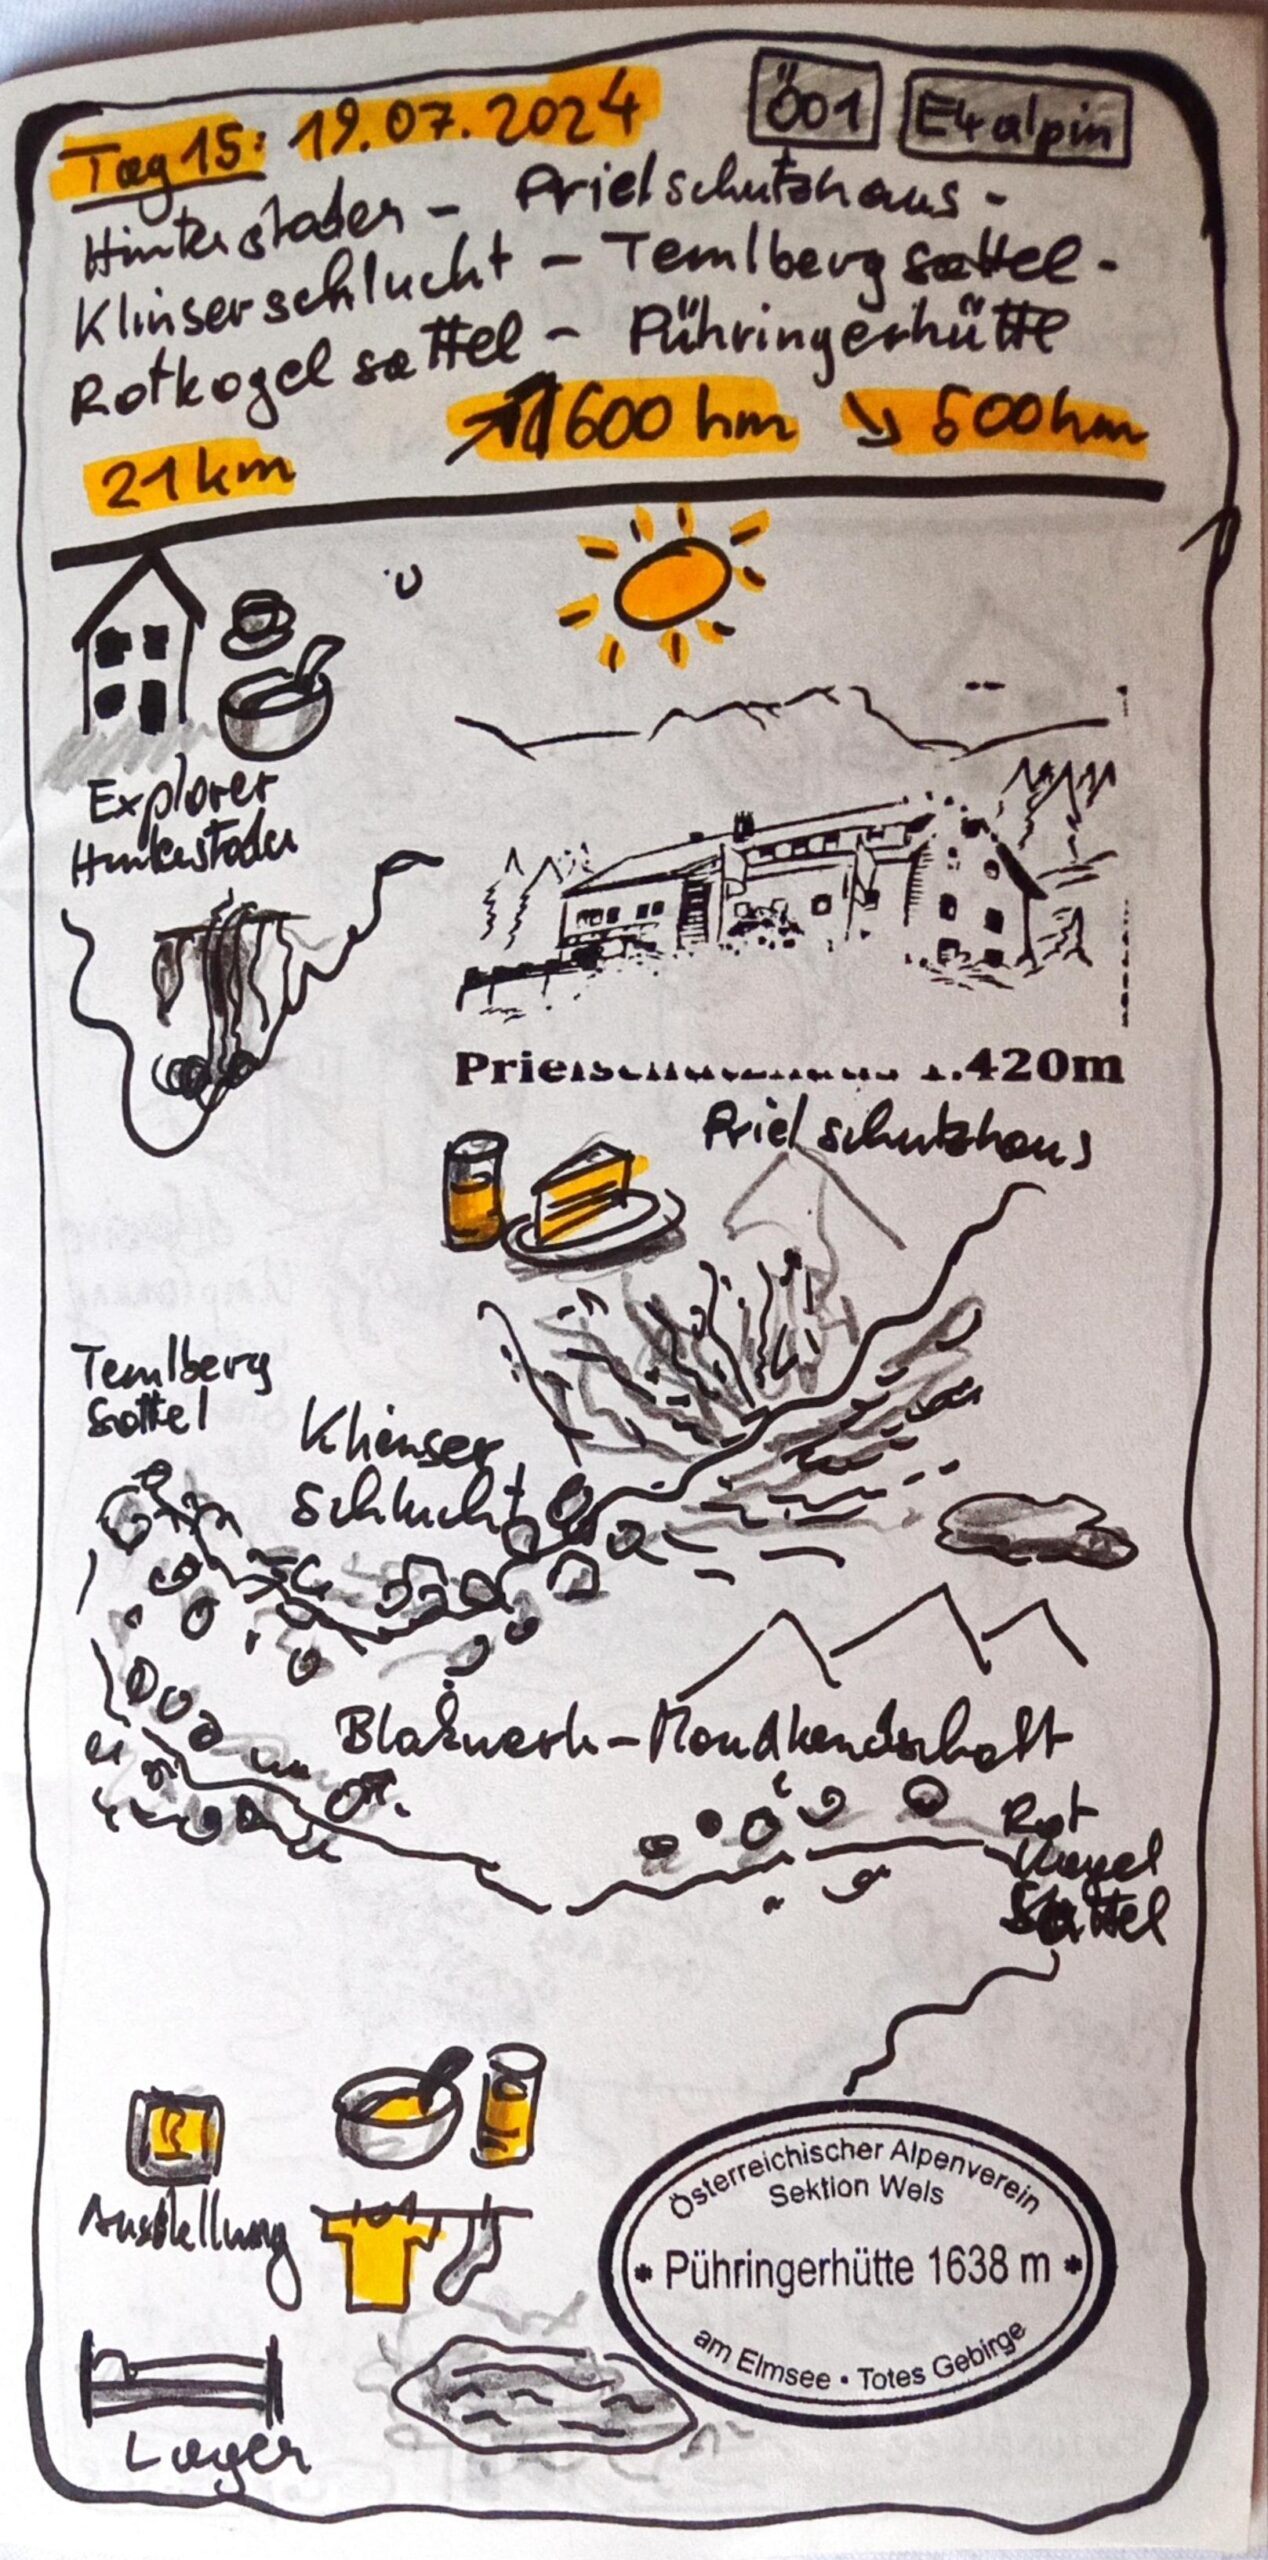 Tag 15: 19.07.2024
Ö01
E4 alpin
Hinterstoder - Prielschutzhaus -
Klinserschlucht - Temlbergsattel -
Rotkogelsattel - Pühringerhütte
21 km ↗ 1600 hm ↘ 600 hm
Explorer
Hinterstoder
.420m
Prielschutzhaus
Temlberg
Sattel
Klinser
Schlucht
Blokwerk - Mondlandschaft
Rot
kogel
Sattel
Ausstellung
Österreichischer Alpenverein
Sektion Wels
* Pühringerhütte 1638 m *
am Elmsee • Totes Gebirge
Lager